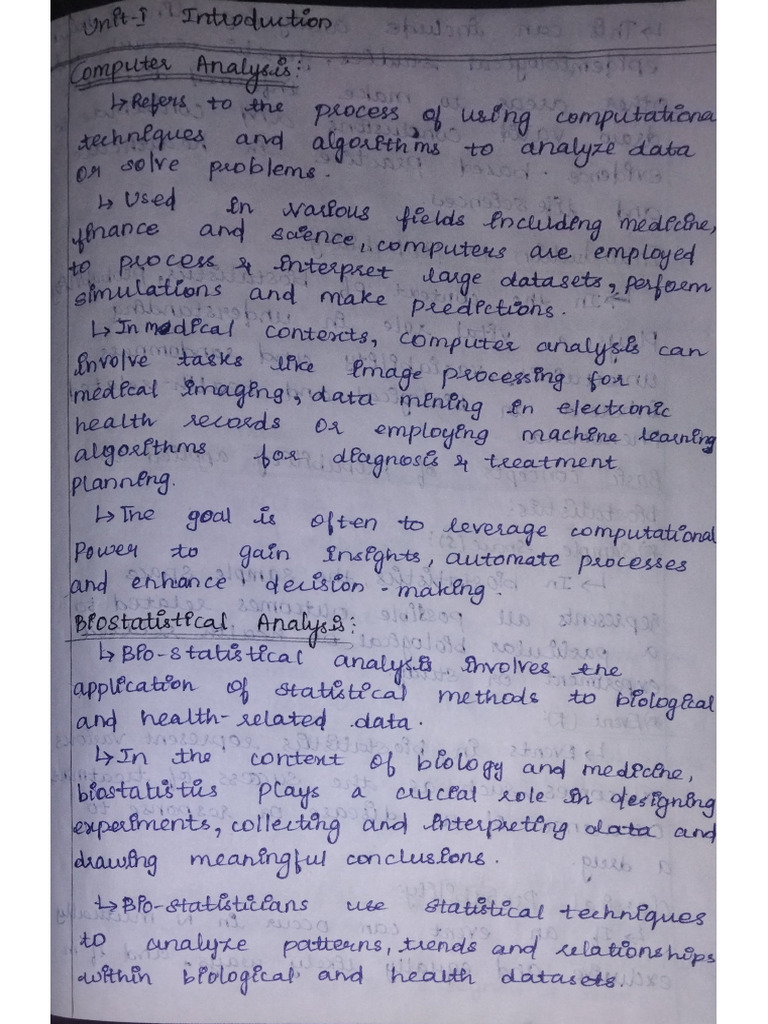 Unit-I Introduction
Computer Analysis:
↳ Refers to the process of using computationa
techniques and algorithms to analyze data
or solve problems.
↳ Used in various fields including medicine,
finance and science, computers are employed
to process & interpret large datasets, perform
simulations and make predictions.
↳ In medical contexts, computer analysis can
involve tasks like image processing for
medical imaging, data mining in electronic
health records or employing machine learning
algorithms for diagnosis & treatment
planning.
↳ The goal is often to leverage computational
Power to gain insights, automate processes
and enhance decision-making.
Biostatistical Analysis:
↳ Bio-statistical analysis involves the
application of statistical methods to biological
and health-related data.
↳ In the context of biology and medicine,
biostatistics plays a crucial role in designing
experiments, collecting and interpreting data and
drawing meaningful conclusions.
↳ Bio-statisticians use statistical techniques
to analyze patterns, trends and relationships
within biological and health datasets.